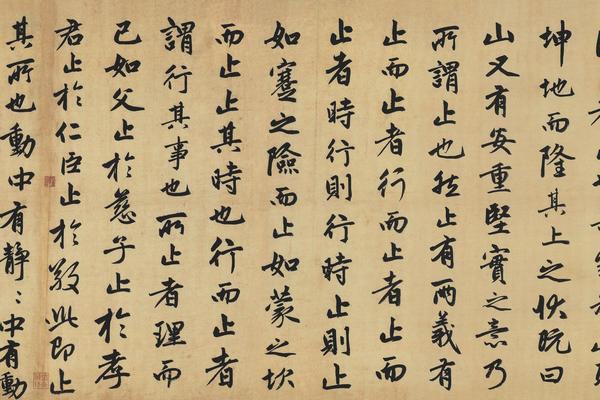 坤地而隆其上之状既曰
山又有安重堅實之意乃
所謂止也然止有兩義有
止而止者行而止者止而
止者時行則行時止則止
如蹇之險而止如蒙之坎
而止止其時也行而止者
謂行其事也所止者理而
已如父止於慈子止於孝
君止於仁臣止於敬此即止
其所也動中有静〻中有動